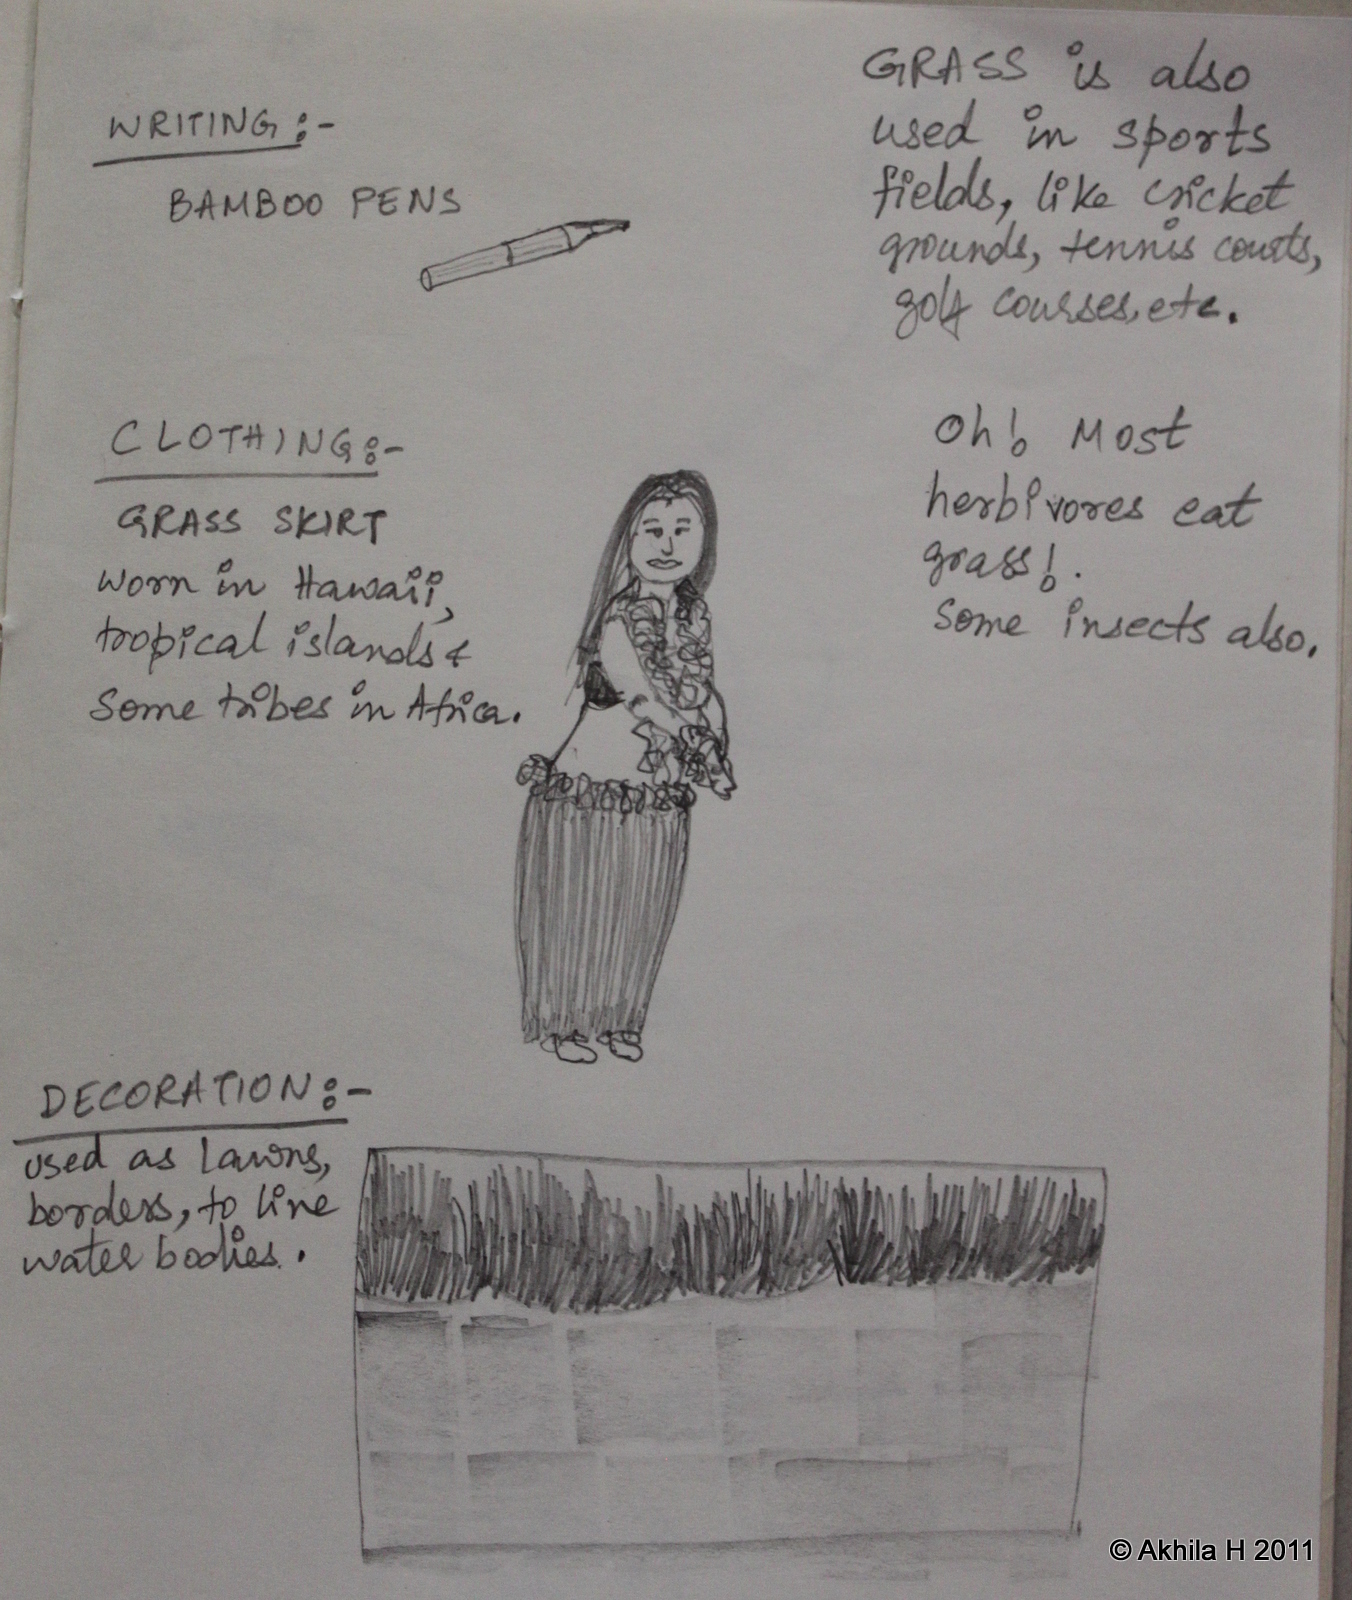 WRITING:-
BAMBOO PENS
CLOTHING:-
GRASS SKIRT
worn in Hawaii,
tropical islands &
Some tribes in Africa.
DECORATION:-
used as lawns,
borders, to line
water bodies.
GRASS is also
used in sports
fields, like cricket
grounds, tennis courts,
golf courses, etc.
Oh! Most
herbivores eat
grass!.
Some insects also.
© Akhila H 2011